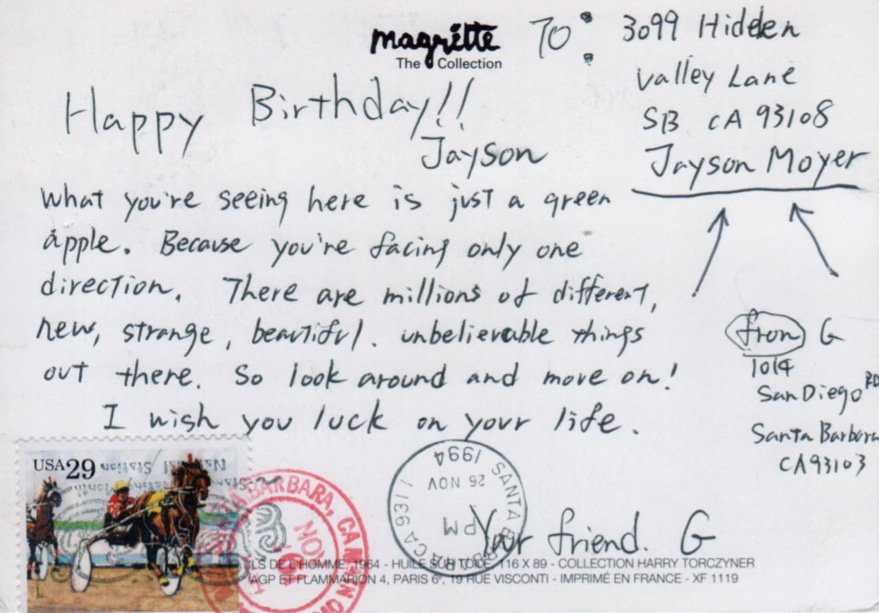 magritte
The Collection
TO:
3099 Hidden
Valley Lane
SB CA 93108
Jayson Moyer
Happy Birthday!!
Jayson
What you're seeing here is just a green
apple. Because you're facing only one
direction. There are millions of different,
new, strange, beautiful. unbelievable things
out there. So look around and move on!
I wish you luck on your life.
from G
1014
San Diego RD
Santa Barbara
CA 93103
Your friend. G
USA29
SANTA BARBARA CA 931
PM
26 NOV
1994
BARBARA, CA
NOV
ILS DE L'HOMME, 1964 - HUILE SUR TOILE, 116 X 89 - COLLECTION HARRY TORCZYNER
AGP ET FLAMMARION 4, PARIS 6e, 19 RUE VISCONTI - IMPRIMÉ EN FRANCE - XF 1119